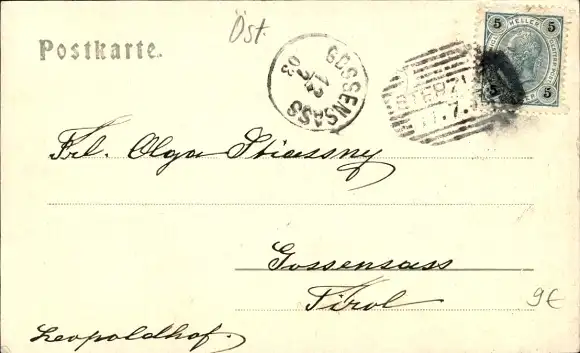 Öst.
Postkarte.
GOSSENSASS
5 HELLER 5
5 5
Frl. Olga Stiassny
Gossensass
Tirol
9€
Leopoldhof.